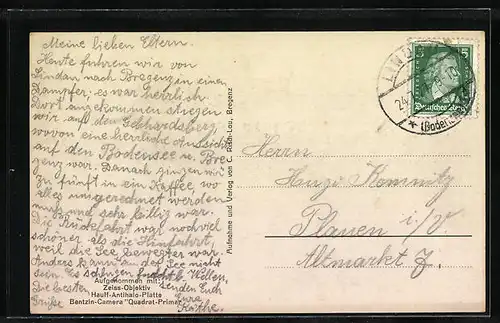 Meine lieben Eltern.
Heute fuhren wir von
Lindau nach Bregenz in einem
Dampfer; es war herrlich.
Dort angekommen stiegen
wir auf den Gebhardsberg,
wovon eine herrliche Aussicht
auf den Bodensee u. Bre
genz war. Danach gingen wir
zu fünft in ein Kaffee, wo
alles umgerechnet werden
muß und sehr billig war.
Die Rückfahrt war noch viel
schöner als die Hinfahrt,
weil die See bewegter war.
Anders kann auf der See nicht
sein. Es schlugen Wellen.
Die besten senden Euch
Grüße Eure
Käthe.
Aufgenommen mit:
Zeiss-Objektiv
Hauff-Antihalo-Platte
Bentzin-Camera "Quadrat-Primar"
Aufnahme und Verlag von C. Bregenz
LINDAU
24.
(Bodensee)
Deutsches Reich
5
Herrn
Hugo Komnitz
Plauen i/V.
Altmarkt 7.